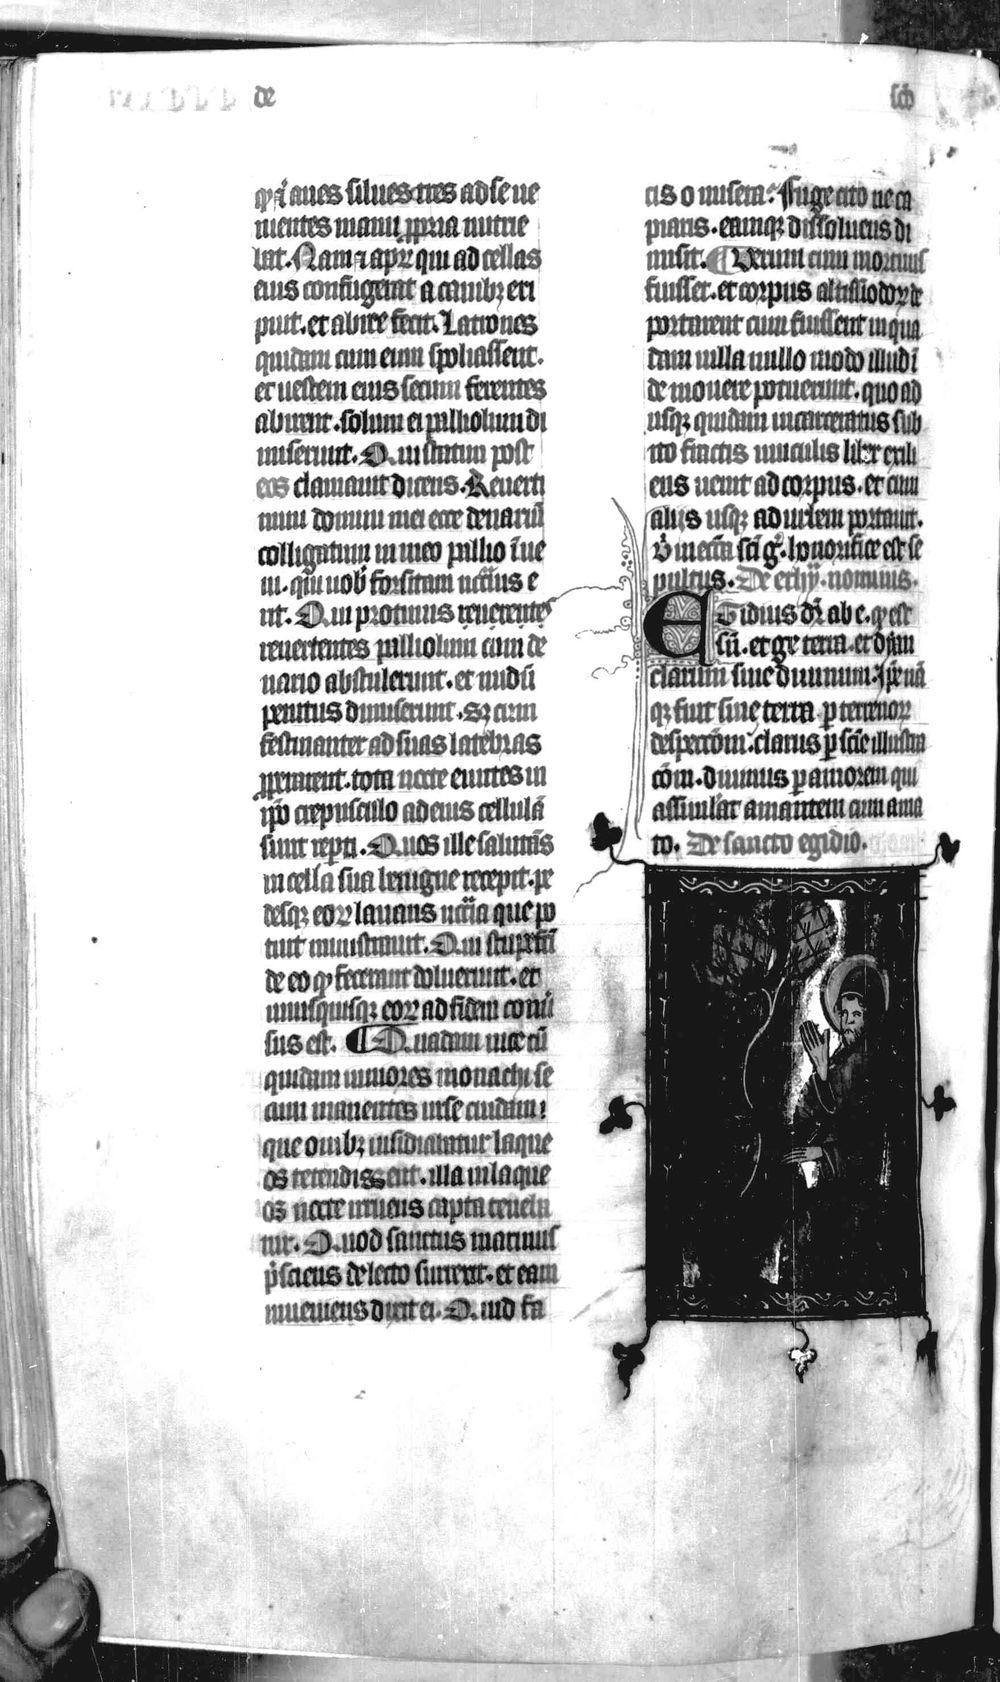 de
scō
qď aues siluestres ad se ue
nientes manu ꝓpria nutrie
bat. Nam ⁊ apꝝ qui ad cellas
eius confugerat a canibꝫ eri
puit. et abire fecit. Latrones
quidam cum eum spoliassent.
et uestem eius secum ferentes
abirent. solum ei palliolum di
miserunt. Qui statim post
eos clamauit dicens. Reuerti
mini domini mei ecce denariū
colligatum in meo pallio īue
ni. qui uob̄ forsitam nc̄cīus e
rit. Qui protinus reuerentes
reuertentes palliolum cum de
nario abstulerunt. et nudū
penitus dimiserunt. Sꝫ cum
festinanter ad suas latebras
ꝓperarent. tota nocte euntes in
ip̄o crepusculo ad eius cellulā
sunt reꝑti. Quos ille salutās
in cella sua benigne recepit. pe
desqꝫ eoꝝ lauans nc̄cīa que po
tuit ministrauit. Qui stupefc̄i
de eo qď fecerant doluerunt. et
unusquisqꝫ eoꝝ ad fidem conū
sus est. Quadam uice cū
quidam iuniores monachi se
cum manentes urse cuidam
que ouibꝫ insidiabatur laque
os tetendissent. illa in laque
os nocte irruens capta teneba
tur. Quod sanctus marinus
p̄sciens de lecto surrexit. et eam
inueniens dixit ei. Quid fa
cis o misera. Fuge cito ne ca
piaris. eamqꝫ dissoluens di
misit. Verum cum mortuus
fuisset. et corpus altissiodoꝝ de
portarent cum fuissent in qua
dam uilla nullo modo illud ī
de mouere potuerunt. quo ad
usqꝫ quidam incarceratus sub
ito fractis uinculis liber exili
ens uenit ad corpus. et cum
aliis usqꝫ ad urbem portauit.
Vƀ in ecc̄ia sc̄i g̊. honorifice est se
pultus. De ethy. nominis.
Egidius dr̄ ab e. qď est
sn̄. et ge terra. et dyan
clarum siue diuinum. Ip̄e nā
qꝫ fuit sine terra ꝑ terrenoꝝ
despectōm. clarus ꝑ scīe illustra
cōm. diuinus ꝑ amorem qui
assimilat amantem cum ama
to. De sancto egidio.